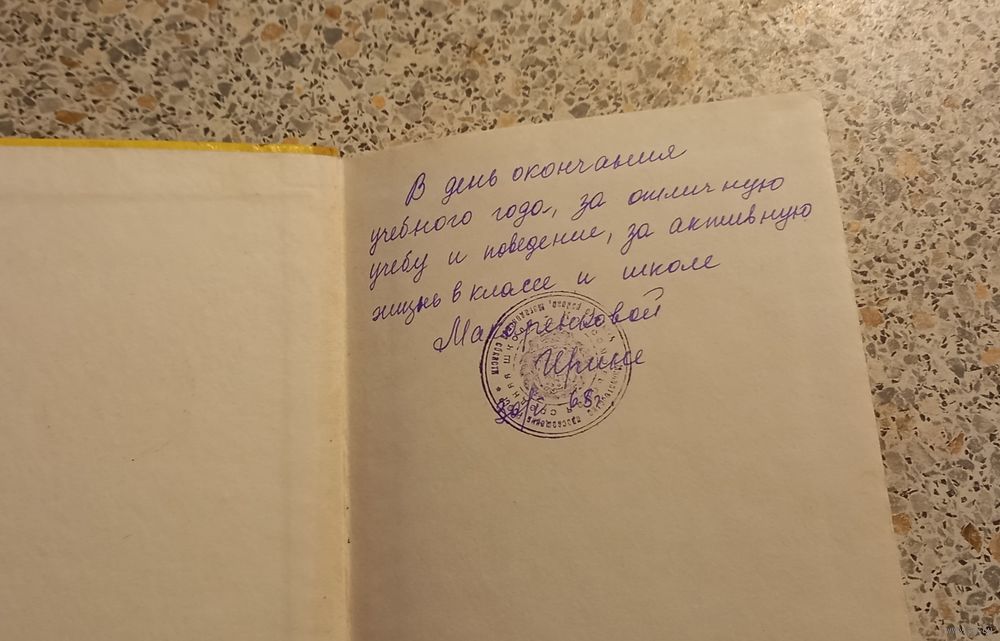 В день окончания
учебного года, за отличную
учебу и поведение, за активную
жизнь в классе и школе
Ирине
68г.